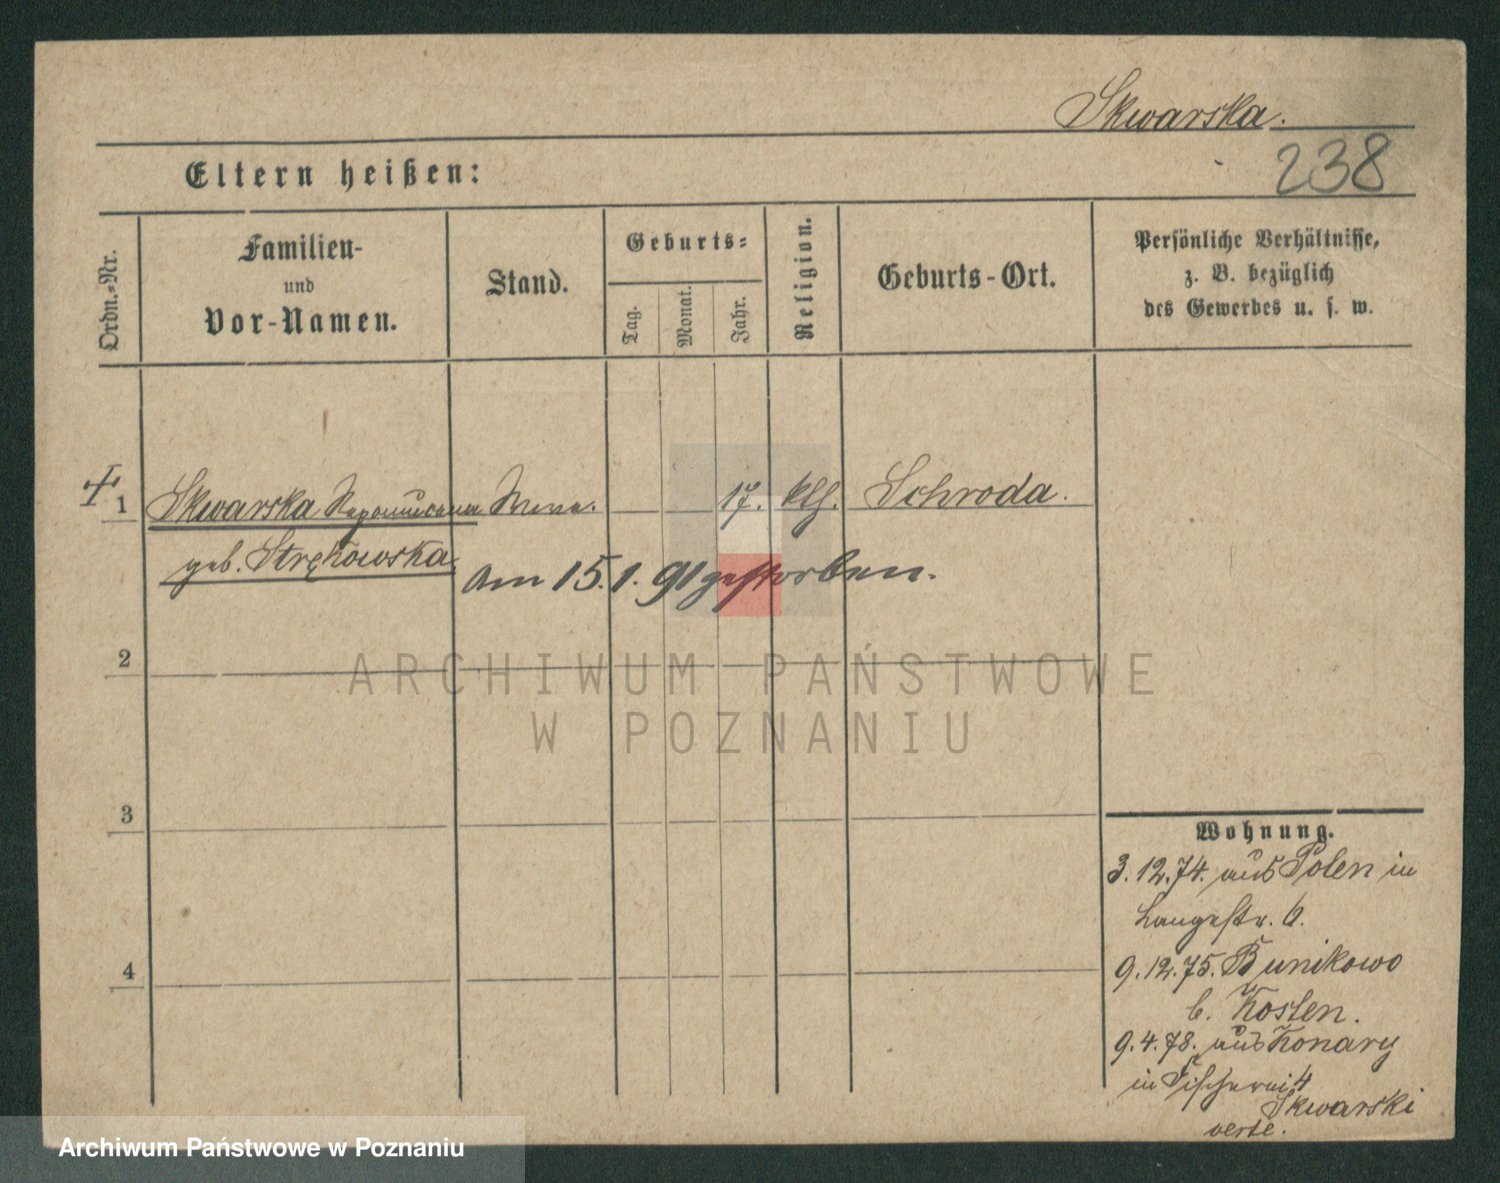 Skwarska.
Eltern heißen:
238
Ordn.-Nr.
Familien-
und
Vor-Namen.
Stand.
Geburts-
Tag.
Monat.
Jahr.
Religion.
Geburts-Ort.
Persönliche Verhältnisse,
z. B. bezüglich
des Gewerbes u. s. w.
1 Skwarska Nepomucena 17. kth. Schroda.
geb. Strękowska
am 15.1.91 gestorben.
2
ARCHIWUM PAŃSTWOWE
W POZNANIU
3
4
Wohnung.
3.12.74. aus Polen in
Langestr. 6.
9.12.75. Bunikowo
b. Kosten.
9.4.78. aus Konary
in Fischerei 4
Skwarski
verte.
Archiwum Państwowe w Poznaniu